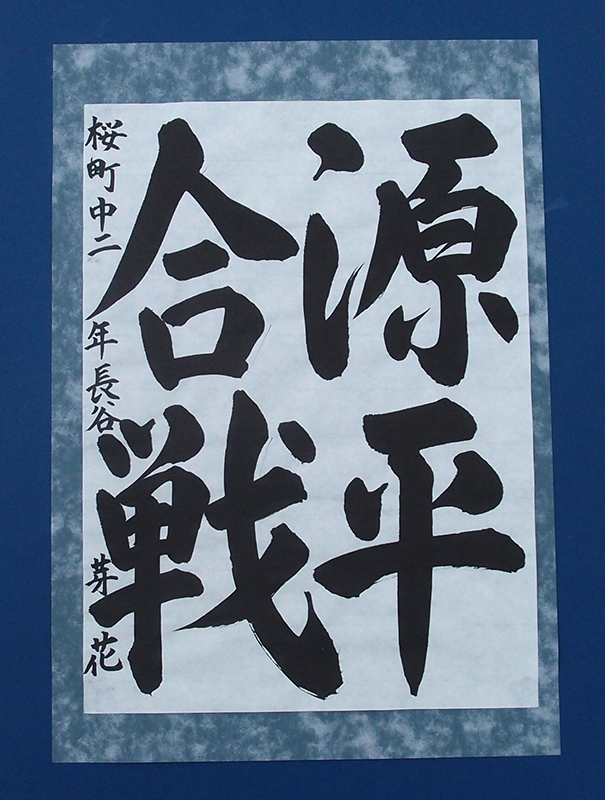 源平
合戦
桜町中二年長谷芽花